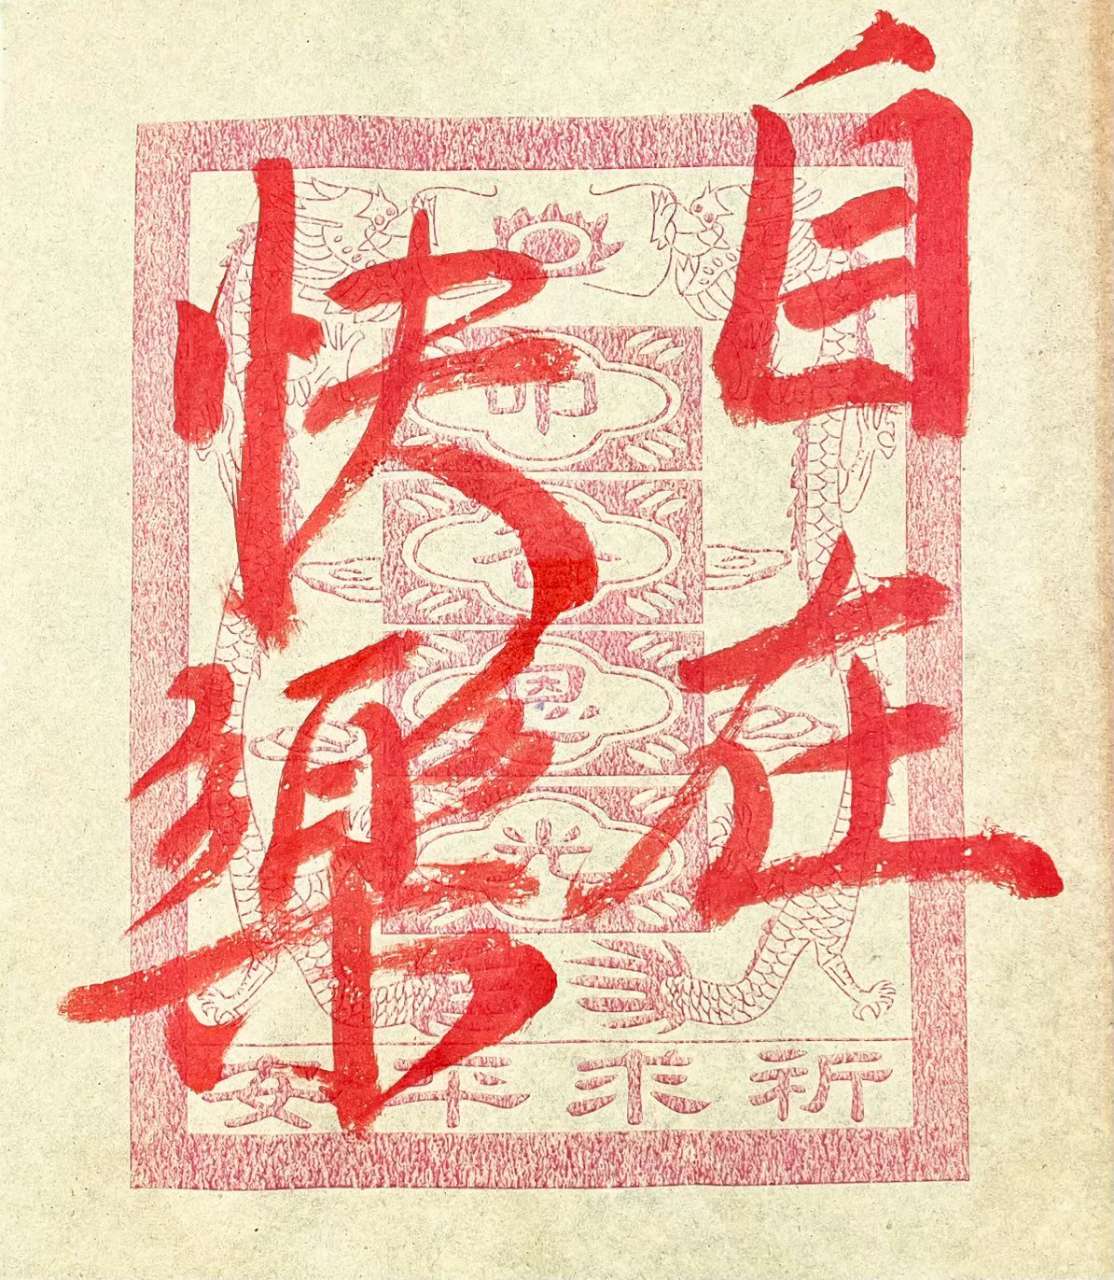 自在
快樂
叩
恩
光
祈求平安